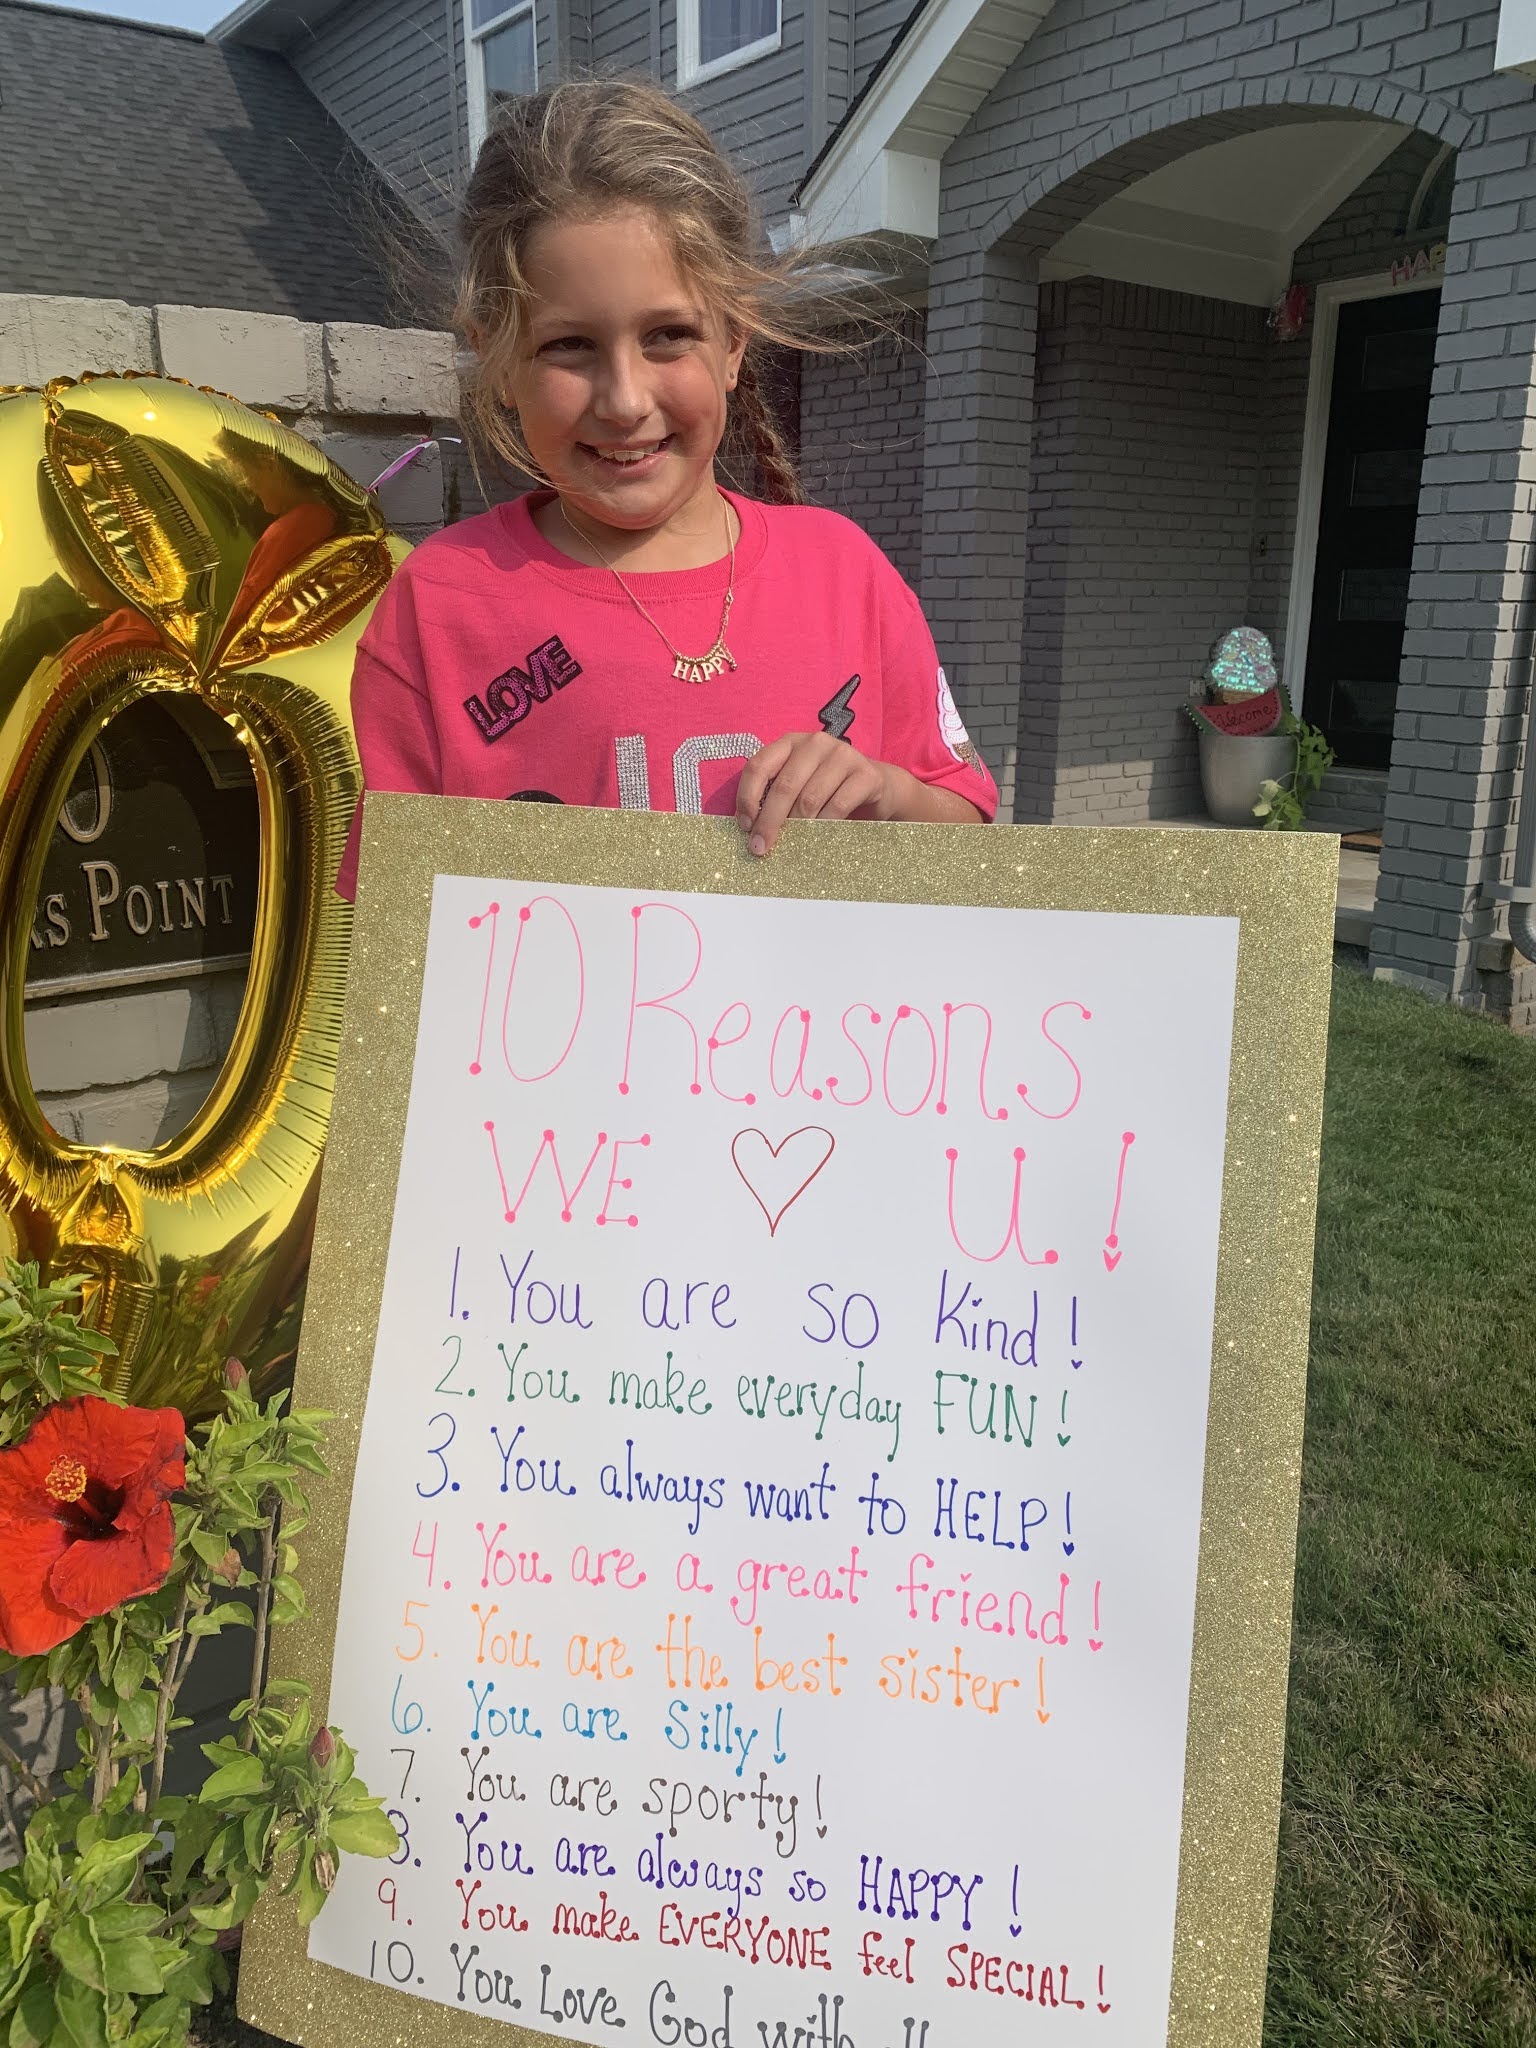 HAP
LOVE
HAPPY
10
Welcome
0
POINT
10 Reasons
WE ♡ U!
1. You are so Kind!
2. You make everyday FUN!
3. You always want to HELP!
4. You are a great friend!
5. You are the best sister!
6. You are Silly!
7. You are sporty!
8. You are always so HAPPY!
9. You make EVERYONE feel SPECIAL!
10. You Love God with